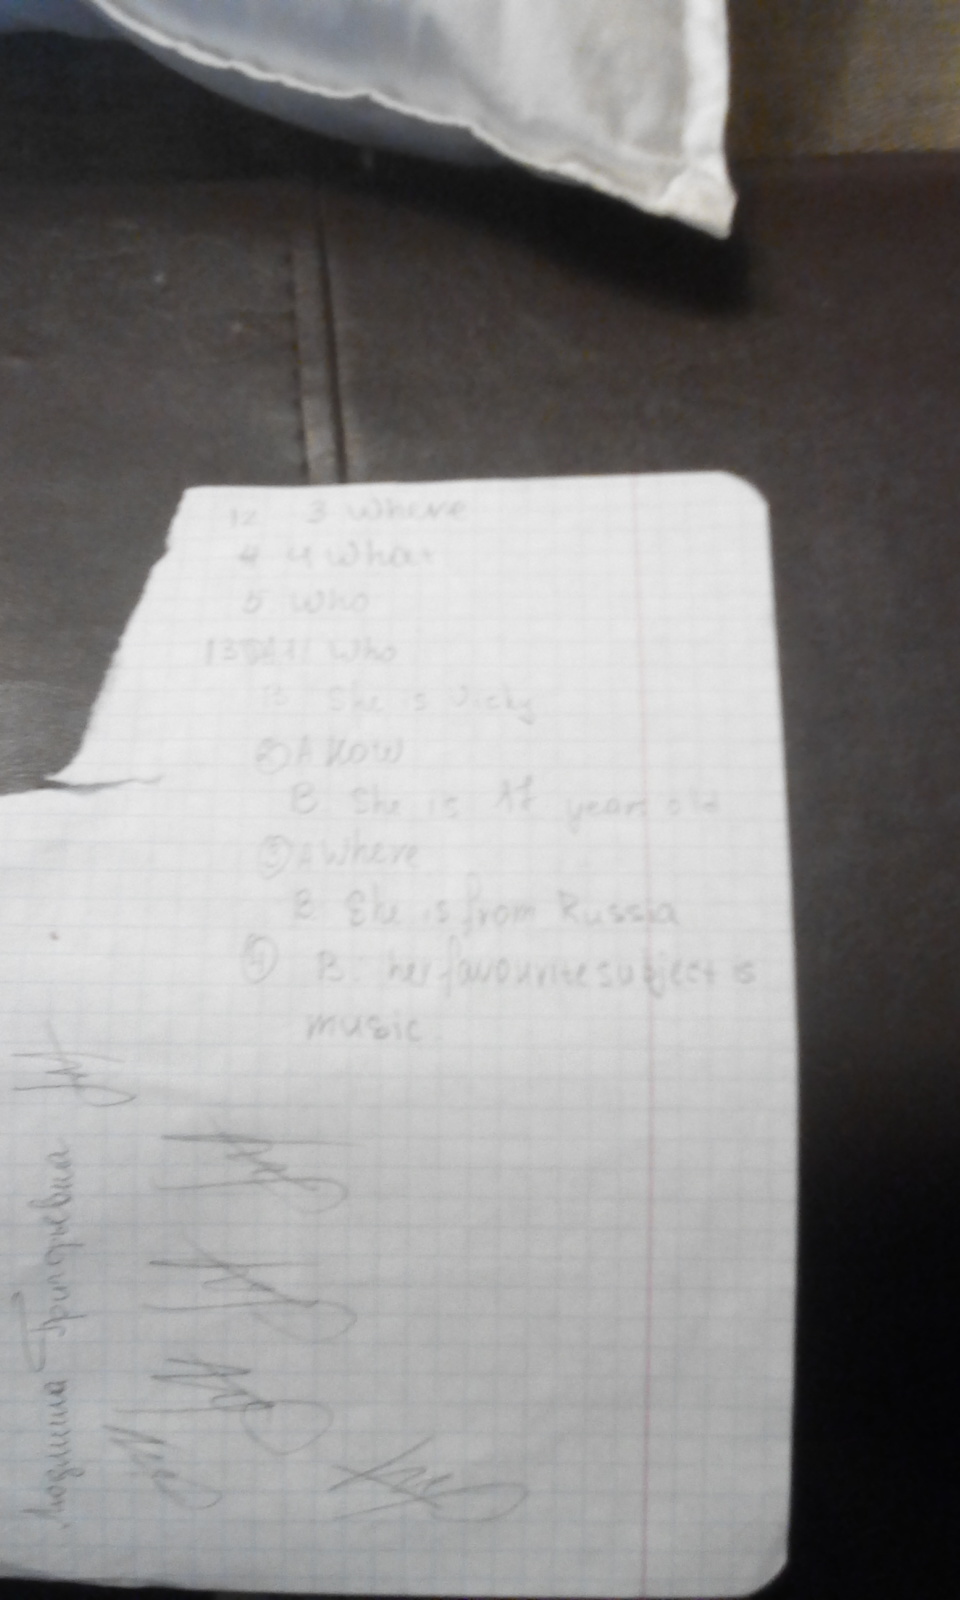 12 3 Where
4 4 What
5 Who
13 Who
B She is Vicky
② A How
B She is years old
③ A Where
B She is from Russia
④ B: her favourite subject is
music
Людмила Григорьевна